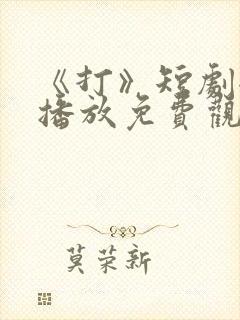 《打》短劇
播放免費觀
莫荣新